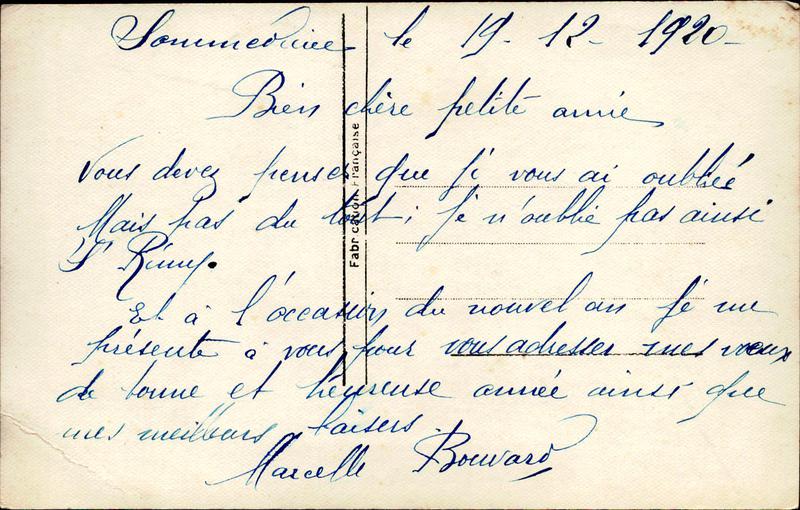 Sommedieue le 19-12-1920-
Bien chère petite amie
Vous devez penser que je vous ai oubliée
Mais pas du tout; je n'oublie pas ainsi
St Rémy.
Et à l'occasion du nouvel an je me
présente à vous pour vous adresser mes vœux
de bonne et heureuse année ainsi que
mes meilleurs baisers.
Marcelle Bouvard
Fabrication Française